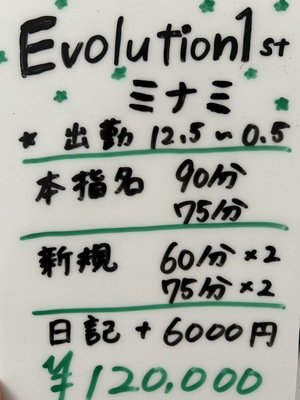 Evolution1st
ミナミ
* 出勤 12.5〜0.5
本指名 90分
75分
新規 60分×2
75分×2
日記+6000円
¥120,000